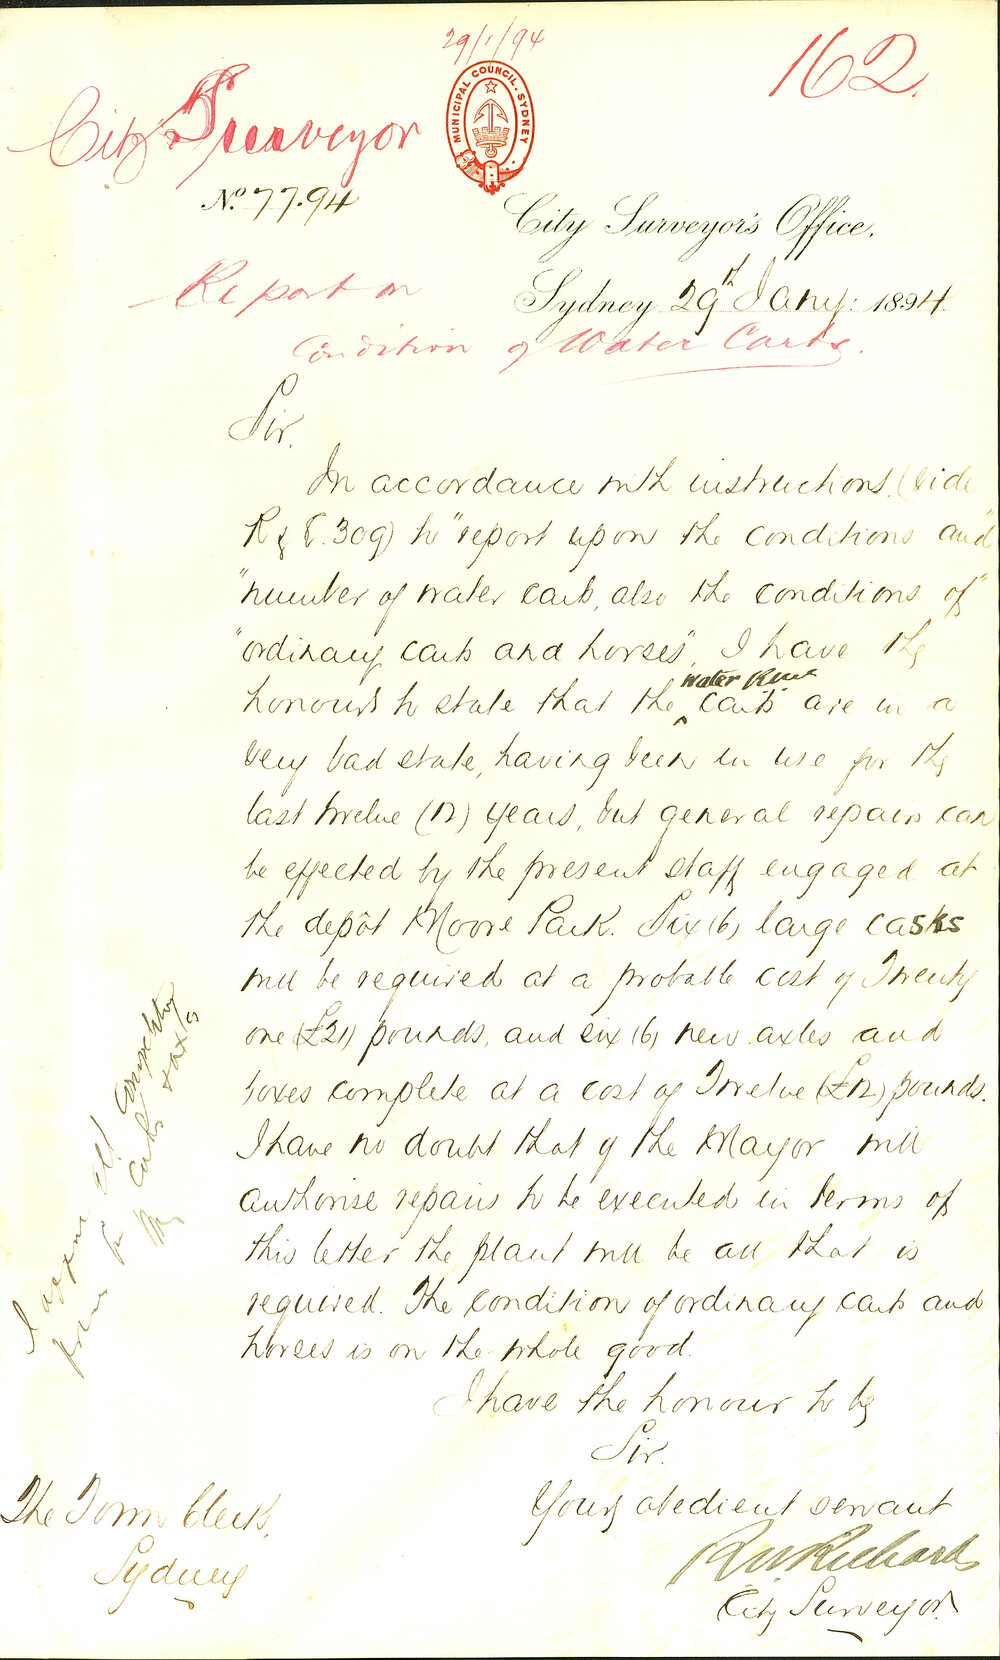 29/1/94
162.
MUNICIPAL COUNCIL. SYDNEY
City Surveyor
No. 77.94
City Surveyor's Office.
Report on
Sydney 29th Jany: 1894
Condition of Water Carts.
Sir.
In accordance with instructions, (vide
R & E. 309) to "report upon the conditions and"
"number of water carts, also the conditions of"
"ordinary carts and horses", I have the
water
honour to state that the ^ carts are in a
very bad state, having been in use for the
last twelve (12) years, but general repairs can
be effected by the present staff engaged at
the depôt Moore Park. Six (6) large casks
will be required at a probable cost of Twenty
one (£21) pounds, and six (6) new axles and
boxes complete at a cost of Twelve (£12) pounds.
I have no doubt that if the Mayor will
authorise repairs to be executed in terms of
this letter the plant will be all that is
required. The condition of ordinary carts and
horses is on the whole good.
I have the honour to be
Sir.
Your obedient servant
R W Richards
City Surveyor.
The Town Clerk,
Sydney